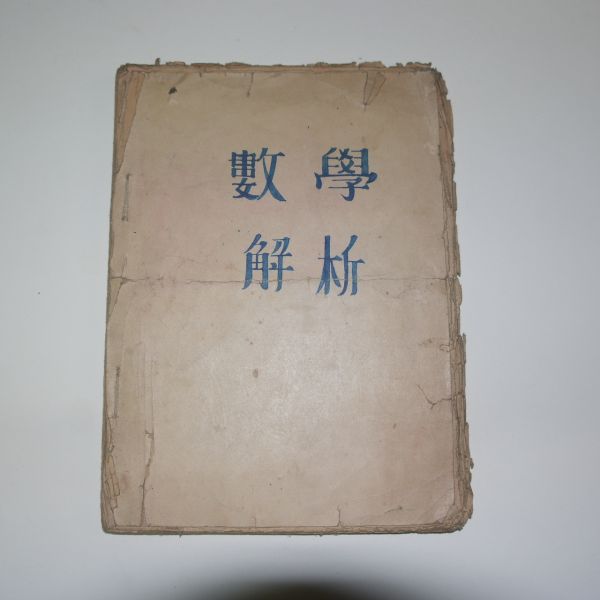 數學
解析